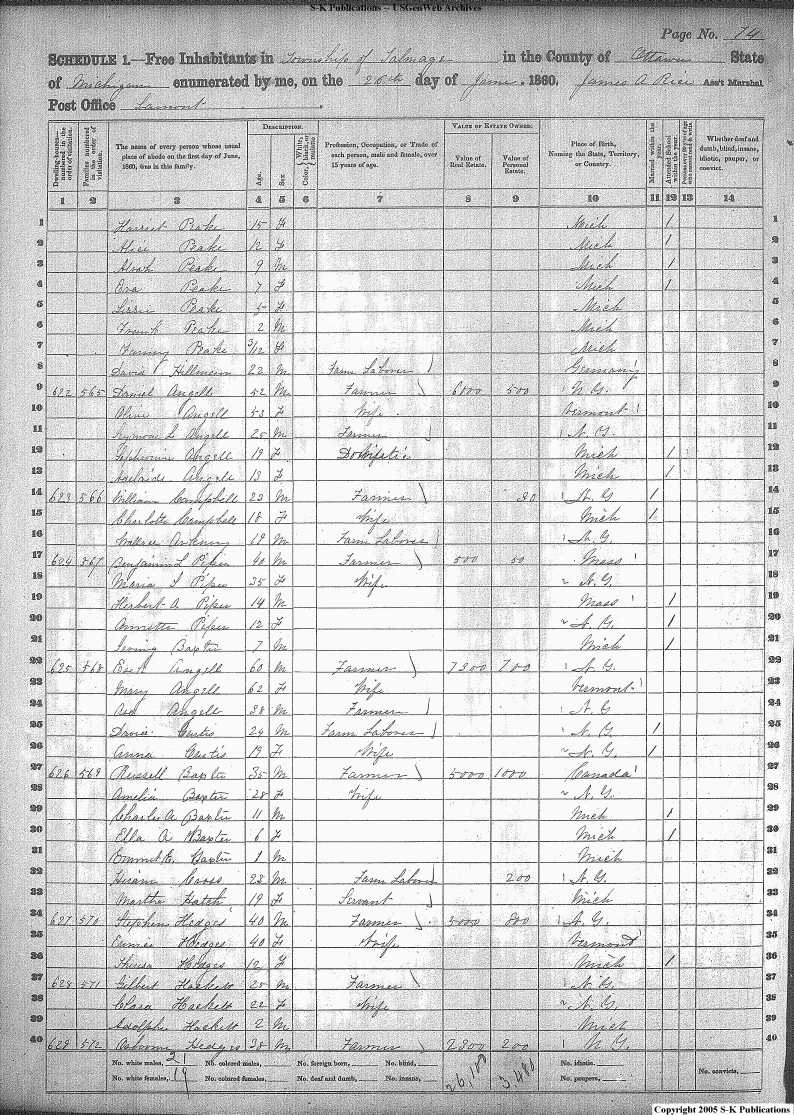 S-K Publications – USGenWeb Archives
Page No. 74
SCHEDULE 1.—Free Inhabitants in Township of Talmage in the County of Ottawa State
of Michigan enumerated by me, on the 20th day of June. 1860. James A Rice Ass't Marshal
Post Office Lamont
Dwelling-houses—numbered in the order of visitation. Families numbered in the order of visitation. The name of every person whose usual place of abode on the first day of June, 1860, was in this family. DESCRIPTION. Age. Sex. Color, White, black, or mulatto. Profession, Occupation, or Trade of each person, male and female, over 15 years of age. VALUE OF ESTATE OWNED. Value of Real Estate. Value of Personal Estate. Place of Birth, Naming the State, Territory, or Country. Married within the year. Attended School within the year. Whether deaf and dumb, blind, insane, idiotic, pauper, or convict.
1 2 3 4 5 6 7 8 9 10 11 12 13 14
1 Harriet Peake 15 F Mich / 1
2 Alice Peake 12 F Mich / 2
3 Peake 9 M Mich / 3
4 Eva Peake 7 F Mich / 4
5 Lizzie Peake 5 F Mich 5
6 Frank Peake 2 M Mich 6
7 Fanny Peake 3/12 F Mich 7
8 David Hillmann 22 M Farm Laborer Germany 8
9 622 565 Daniel Angell 52 M Farmer 6000 500 N. Y. 9
10 Olive Angell 53 F Wife Vermont 10
11 Seymour L Angell 25 M Farmer N. Y. 11
12 Angell 19 F Domestic Mich / 12
13 Adelaide Angell 13 F Mich / 13
14 623 566 William Campbell 23 M Farmer N. Y. 1 14
15 Charlotte Campbell 18 F Wife Mich 1 15
16 Wallace 19 M Farm Laborer N. Y. 16
17 624 567 Benjamin L Piper 40 M Farmer 500 50 Mass 17
18 Maria L Piper 35 F Wife N. Y. 18
19 Herbert A Piper 14 M Mass / 19
20 Annette Piper 12 F N. Y. / 20
21 Irving Baxter 7 M Mich / 21
22 625 568 Angell 60 M Farmer 7300 700 N. Y. 22
23 Mary Angell 62 F Wife Vermont 23
24 Asa Angell 38 M Farmer N. Y. 24
25 David Curtis 24 M Farm Laborer N. Y. 1 25
26 Anna Curtis 19 F Wife N. Y. 1 26
27 626 569 Russell Baxter 35 M Farmer 5000 1000 Canada 27
28 Amelia Baxter 28 F Wife N. Y. 28
29 Charles A Baxter 11 M Mich / 29
30 Ella A Baxter 6 F Mich / 30
31 Emmet E. Baxter 1 M Mich 31
32 Hiram Cross 23 M Farm Laborer 200 N. Y. 32
33 Martha Hatch 19 F Servant Mich 33
34 627 570 Stephen Hedges 40 M Farmer 800 N. Y. 34
35 Hedges 40 F Wife Vermont 35
36 Theresa Hedges 12 F Mich / 36
37 628 571 Gilbert Haskett 25 M Farmer N. Y. 37
38 Clara Haskett 22 F Wife N. Y. 38
39 Adolphe Haskett 2 M Mich 39
40 629 572 Osborne Hedges 38 M Farmer 2300 200 N. Y. 40
No. white males, 21 No. colored males, No. foreign born, No. blind, 26,100 3,480 No. idiotic.
No. white females, 19 No. colored females, No. deaf and dumb, No. insane, No. paupers, No. convicts,
Copyright 2005 S-K Publications